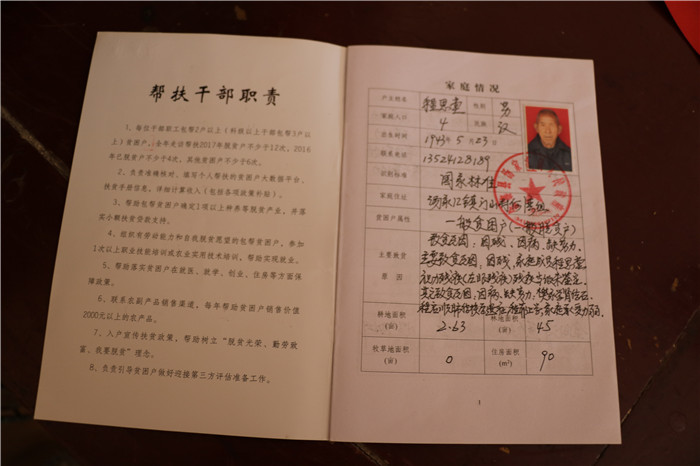 帮扶干部职责
1、每位干部职工包帮2户以上（科级以上干部包帮3户以
上）贫困户，全年走访帮扶2017年脱贫户不少于12次，2016
年已脱贫户不少于4次，其他贫困户不少于6次。
2、负责准确核对、填写个人帮扶的贫困户大数据平台、
扶贫手册信息，详细计算收入（包括各项政策补贴）。
3、帮助包帮贫困户确定1项以上种养等脱贫产业，并落
实小额扶贫贷款支持。
4、组织有劳动能力和自我脱贫愿望的包帮贫困户，参加
1次以上职业技能培训或农业实用技术培训，帮助实现就业。
5、帮助落实贫困户在就医、就学、创业、住房等方面保
障政策。
6、联系农副产品销售渠道，每年帮助贫困户销售价值
2000元以上的农产品。
7、入户宣传扶贫政策，帮助树立“脱贫光荣、勤劳致
富、我要脱贫”理念。
8、负责引导贫困户做好迎接第三方评估准备工作。
家庭情况
户主姓名 程思 性别 男
家庭人口 4 民族 汉
出生时间 1943年5月23日
联系电话 13524128189
识别标准 国家标准
家庭住址
贫困户属性 一般贫困户（一般脱贫户）
主要致贫
原因
致贫原因：因残、因病、缺劳力。
主要致贫原因：因残，家庭成员程思
视力残疾（左眼残疾）残疾
其它致贫原因：因病、缺劳力，
耕地面积
（亩） 2.63 林地面积
（亩） 45
牧草地面积
（亩） 0 住房面积
（m²） 90
1